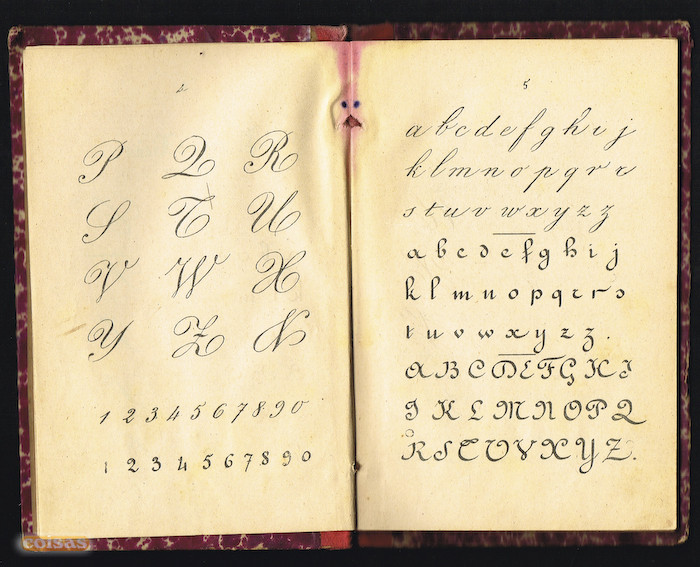 2
P Q R
S T U
V W X
Y Z N
1 2 3 4 5 6 7 8 9 0
1 2 3 4 5 6 7 8 9 0
coisas
5
a b c d e f g h i j
k l m n o p q r r
s t u v w x y z z
a b c d e f g h i j
k l m n o p q r r s
t u v w x y z z .
A B C D E F G H I
J K L M N O P Q
R S T U V X Y Z .